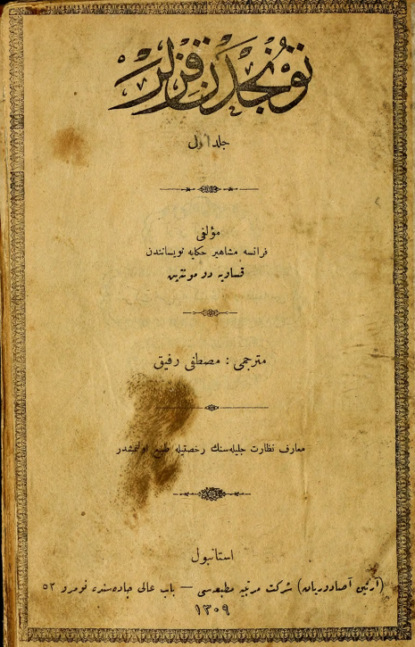 تونجدن قزلر
جلد اول
مؤلفی
فرانسه مشاهیر حکایه نویسانندن
قساویه دو مونتهپن
مترجمی : مصطفی رفیق
معارف نظارت جلیله‌سنك رخصتیله طبع اولنمشدر
استانبول
(آرتین آصادوریان) شرکت مرتبیه مطبعه‌سی — باب عالی جاده‌سنده نومرو ٥٣
١٣٠٩